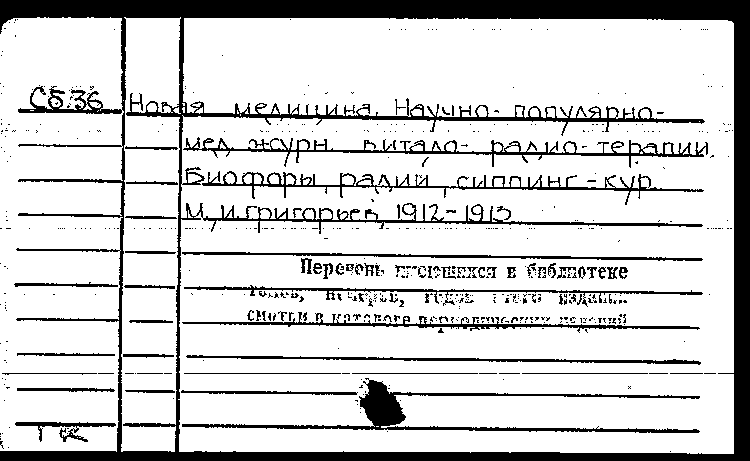 Сб.36 Новая медицина. Научно-популярно-
мед. журн. витало-радио-терапии.
Биофоры, радий, сиппинг-кур.
М., И. Григорьев, 1912-1913
Перечень имеющихся в библиотеке
томов, номеров, годов этого издания
смотри в каталоге периодических изданий
ГК